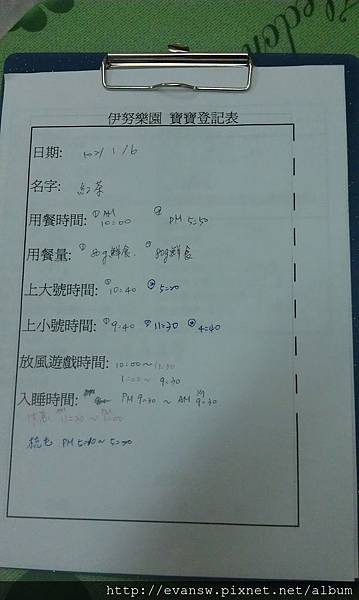 伊努樂園 寶寶登記表
日期: 102/1/6
名字: 紅茶
用餐時間: ① AM 10:00 ② PM 5:50
用餐量: ① 80g鮮食. ② 80g鮮食
上大號時間: ① 10:40 ② 5:00
上小號時間: ① 9:40 ② 11:30 ③ 4:40
放風遊戲時間: 10:00~11:30
1:00~ 9:30
入睡時間: PM 9:30 ~ AM 9:30
休息 11:30 ~ 1:00
梳毛 PM 5:10~5:20
http://evansw.pixnet.net/album